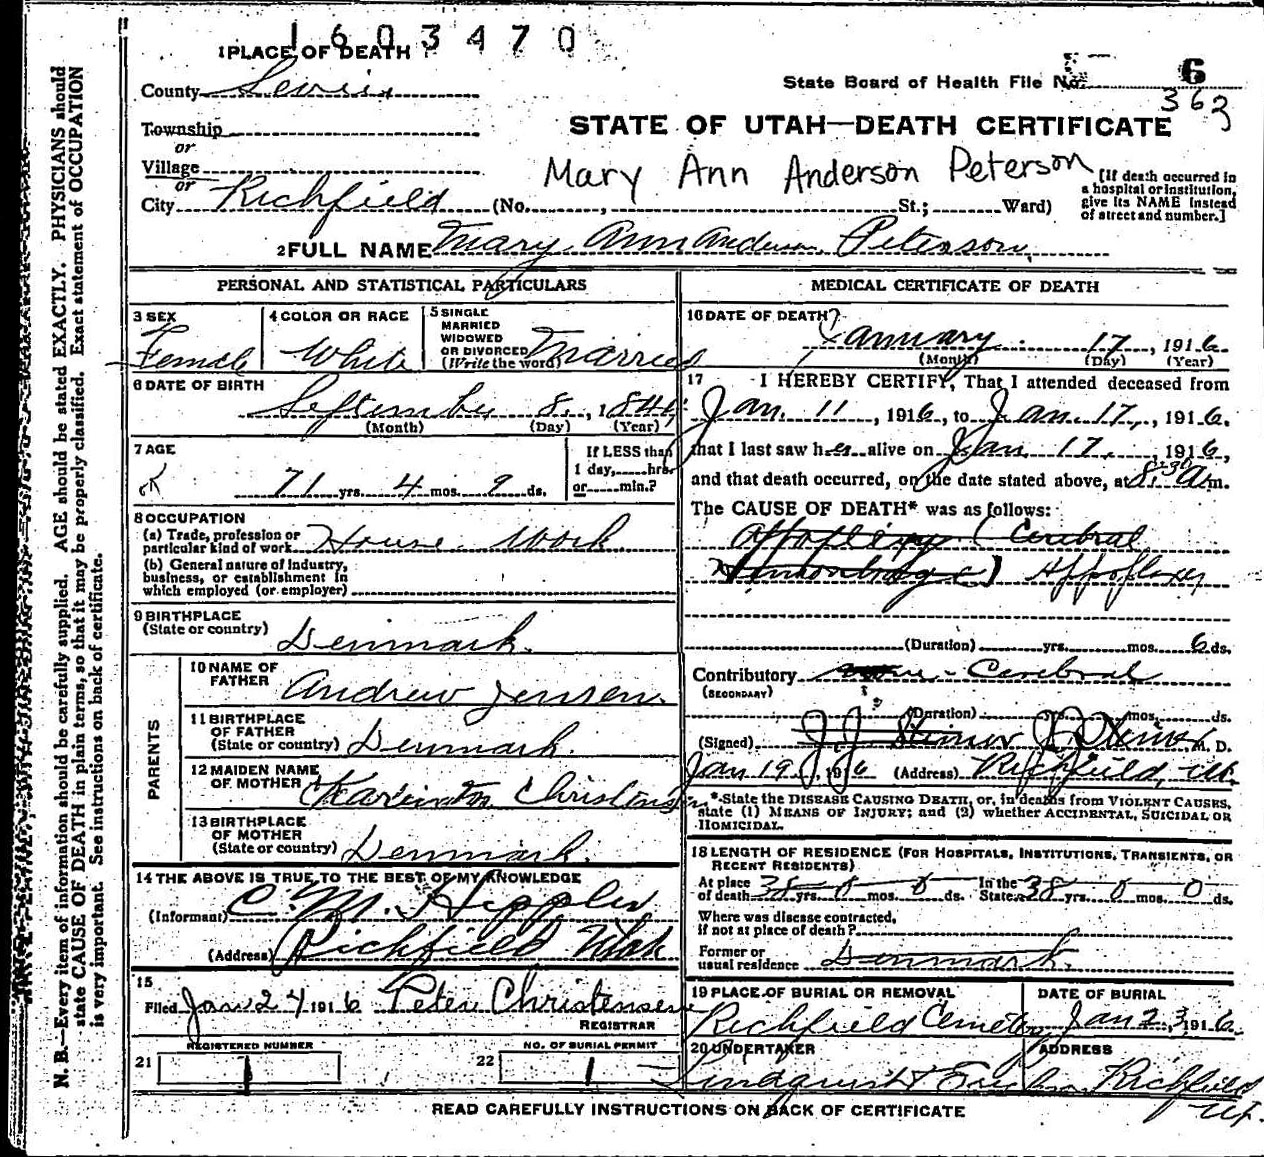 1603470
1 PLACE OF DEATH
County Sevier
State Board of Health File No. 6
363
Township
or
STATE OF UTAH—DEATH CERTIFICATE
Village
or
Mary Ann Anderson Peterson
[If death occurred in
a hospital or institution,
give its NAME instead
of street and number.]
City Richfield (No. , St.; Ward)
2 FULL NAME Mary Ann Anderson Peterson
PERSONAL AND STATISTICAL PARTICULARS
3 SEX
Female
4 COLOR OR RACE
White
5 SINGLE
MARRIED
WIDOWED
OR DIVORCED
(Write the word)
Married
6 DATE OF BIRTH
September 8, 1844
(Month) (Day) (Year)
7 AGE
OK
71 yrs. 4 mos. 9 ds.
If LESS than
1 day, hrs.
or min.?
8 OCCUPATION
(a) Trade, profession or
particular kind of work House Work
(b) General nature of industry,
business, or establishment in
which employed (or employer)
9 BIRTHPLACE
(State or country) Denmark.
PARENTS
10 NAME OF
FATHER Andrew Jensen.
11 BIRTHPLACE
OF FATHER
(State or country) Denmark.
12 MAIDEN NAME
OF MOTHER
13 BIRTHPLACE
OF MOTHER
(State or country) Denmark.
14 THE ABOVE IS TRUE TO THE BEST OF MY KNOWLEDGE
(Informant) C. M. Hippler
(Address) Richfield Utah
15
Filed Jan 24 1916 Peter Christensen
REGISTRAR
21 REGISTERED NUMBER
1
22 NO. OF BURIAL PERMIT
1
MEDICAL CERTIFICATE OF DEATH
16 DATE OF DEATH
January 17, 1916
(Month) (Day) (Year)
17 I HEREBY CERTIFY, That I attended deceased from
Jan. 11, 1916, to Jan. 17, 1916.
that I last saw her alive on Jan 17, 1916,
and that death occurred, on the date stated above, at 8:30 a m.
The CAUSE OF DEATH* was as follows:
Cerebral
(Duration) yrs. mos. 6 ds.
Contributory Cerebral
(SECONDARY)
(Duration) yrs. mos. ds.
(Signed) J. J. Steiner M. D.
Jan 19, 1916 (Address) Richfield, Ut.
*State the DISEASE CAUSING DEATH, or, in deaths from VIOLENT CAUSES,
state (1) MEANS OF INJURY; and (2) whether ACCIDENTAL, SUICIDAL OR
HOMICIDAL.
18 LENGTH OF RESIDENCE (FOR HOSPITALS, INSTITUTIONS, TRANSIENTS, OR
RECENT RESIDENTS)
At place of death 38 yrs. 0 mos. 0 ds. In the State 38 yrs. 0 mos. 0 ds.
Where was disease contracted,
if not at place of death?
Former or
usual residence Denmark.
19 PLACE OF BURIAL OR REMOVAL
Richfield Cemetery
DATE OF BURIAL
Jan 23, 1916.
20 UNDERTAKER
Lindquist &
ADDRESS
Richfield
Ut.
READ CAREFULLY INSTRUCTIONS ON BACK OF CERTIFICATE
N. B.—Every item of information should be carefully supplied. AGE should be stated EXACTLY. PHYSICIANS should
state CAUSE OF DEATH in plain terms, so that it may be properly classified. Exact statement of OCCUPATION
is very important. See instructions on back of certificate.